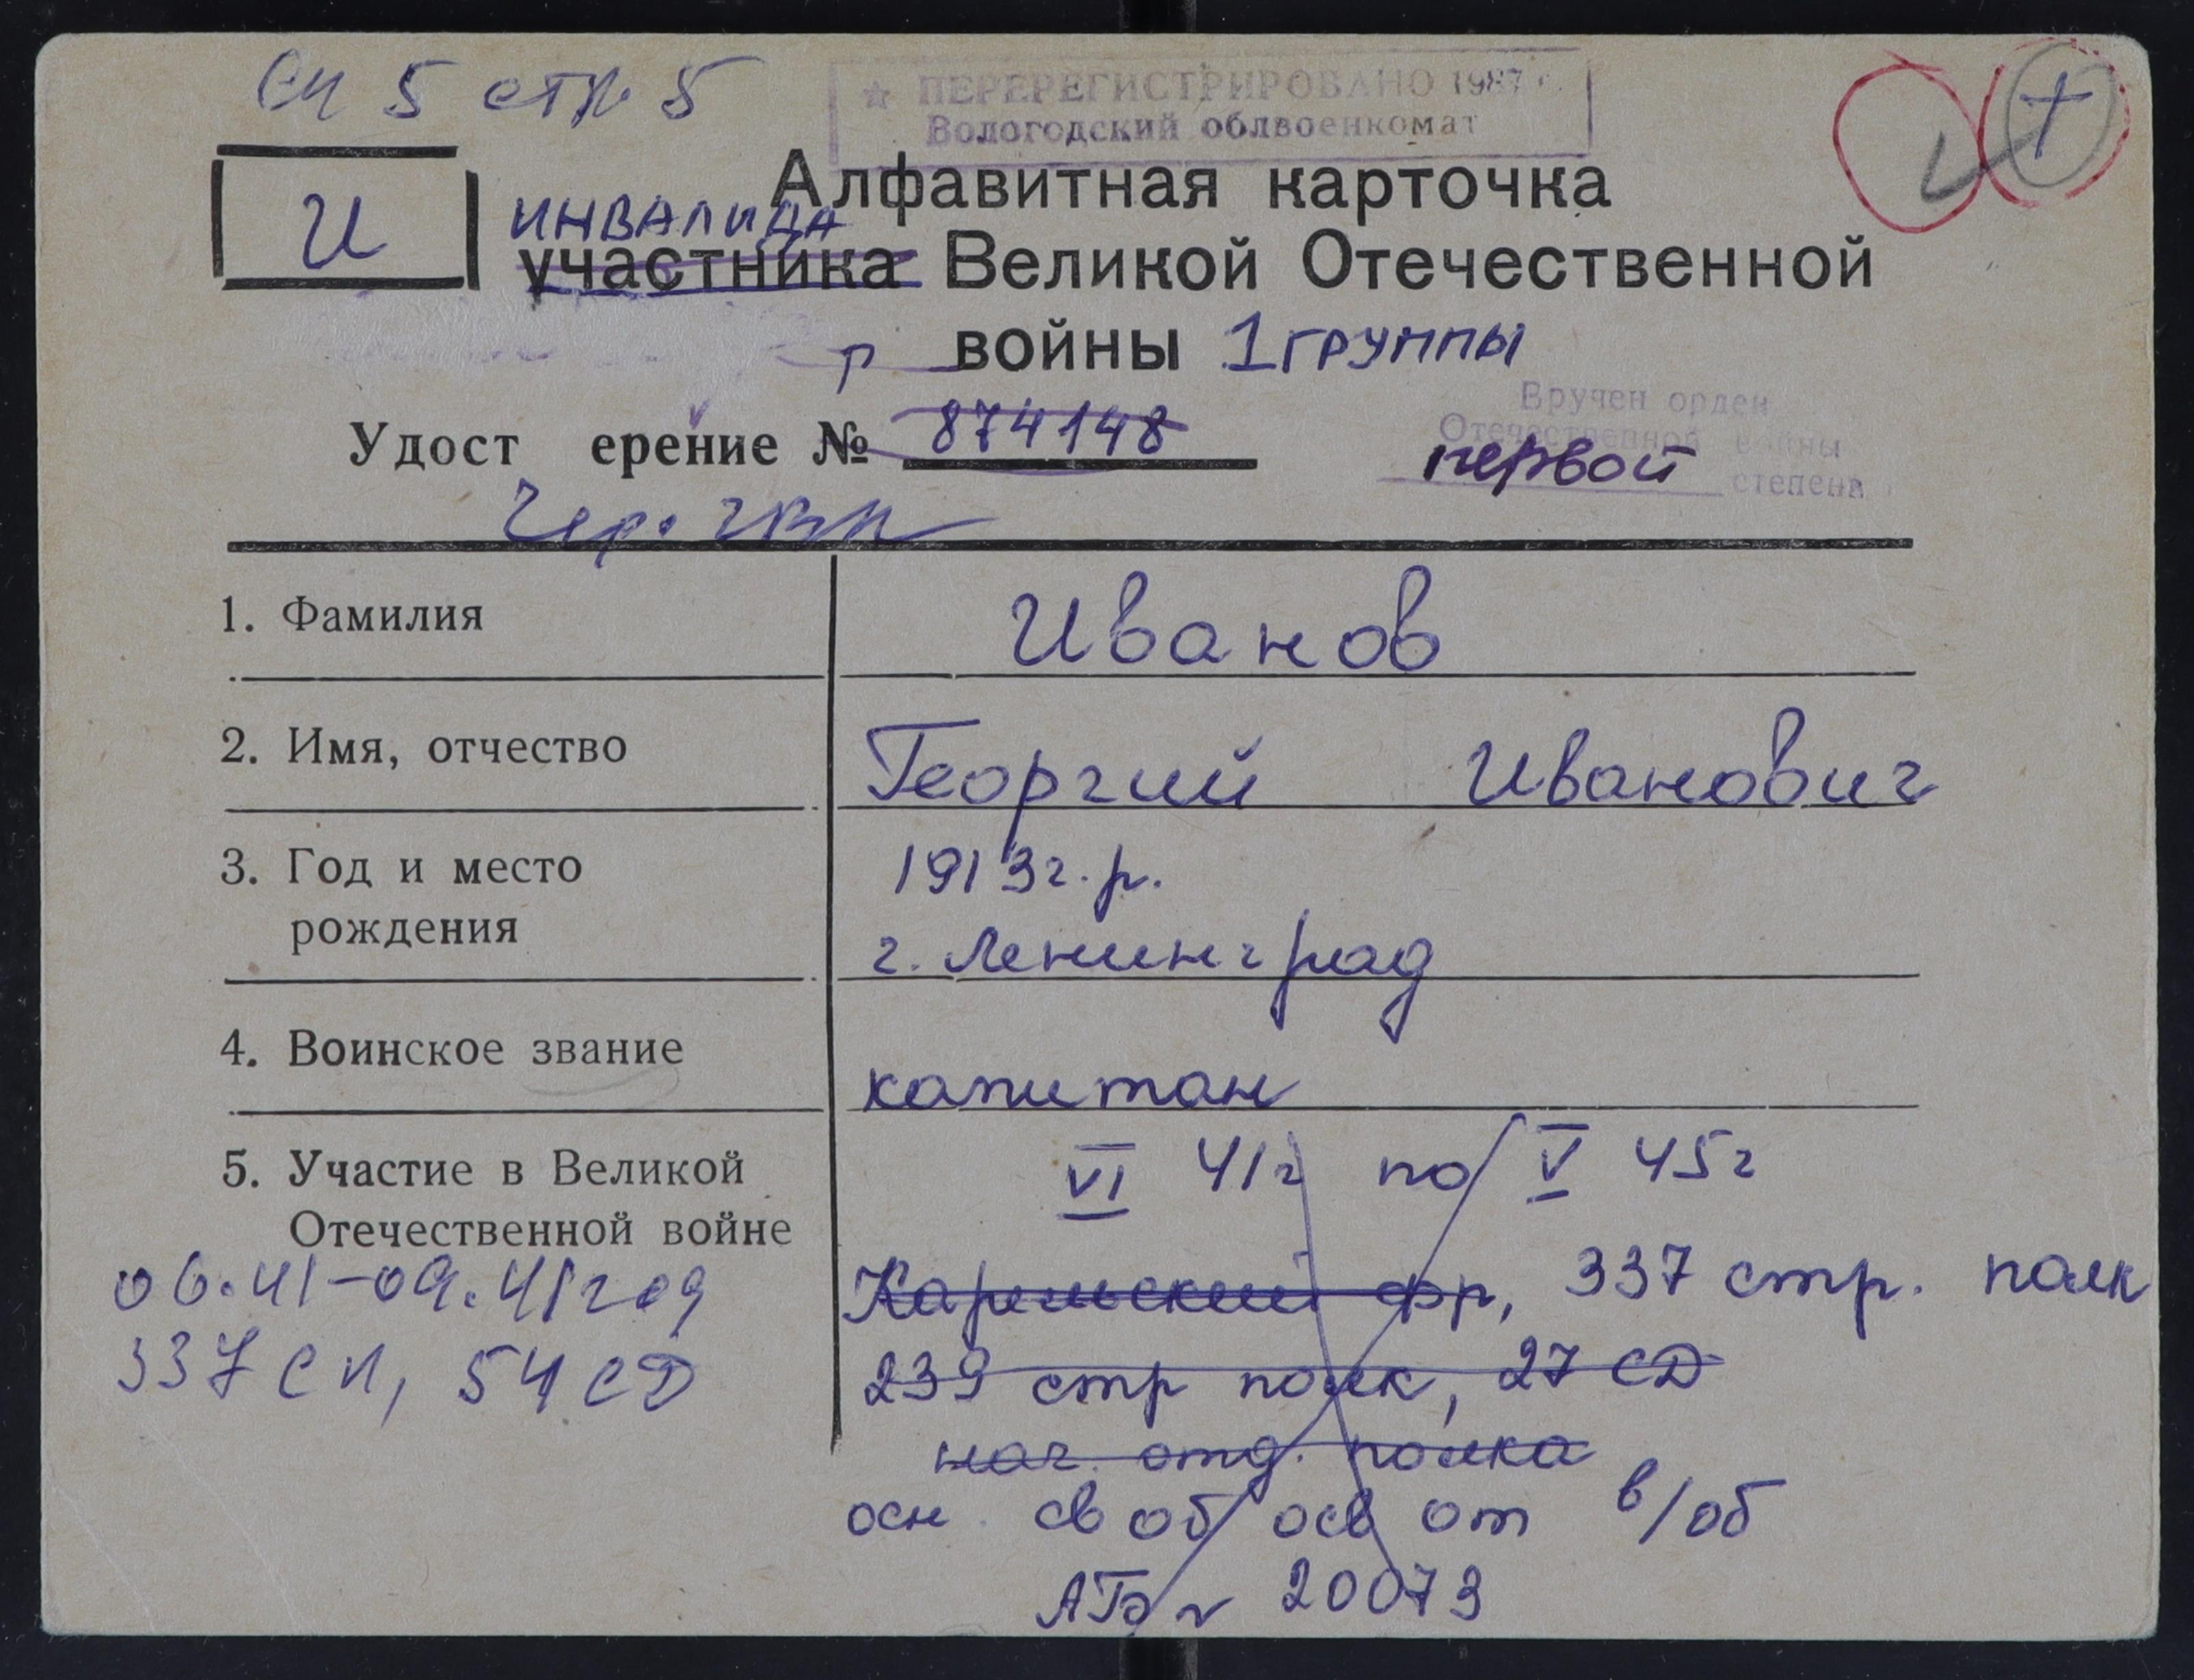 сп 5 стр 5
☆ ПЕРЕРЕГИСТРИРОВАНО 1987 г.
Вологодский облвоенкомат
+
И
Алфавитная карточка
ИНВАЛИДА
участника Великой Отечественной
войны 1 ГРУППЫ
р
Удост ерение № 874148
Вручен орден
Отечественной войны
первой степени
Чер. ГВК
1. Фамилия
Иванов
2. Имя, отчество
Георгий Иванович
3. Год и место
рождения
1913 г. р.
г. Ленинград
4. Воинское звание
капитан
5. Участие в Великой
Отечественной войне
VI 41г по V 45г
06.41-09.41 год
337 СП, 54 СД
Карельский фр, 337 стр. полк
239 стр полк, 27 СД
нач. отд. полка
осн. св об осв от в/об
20073